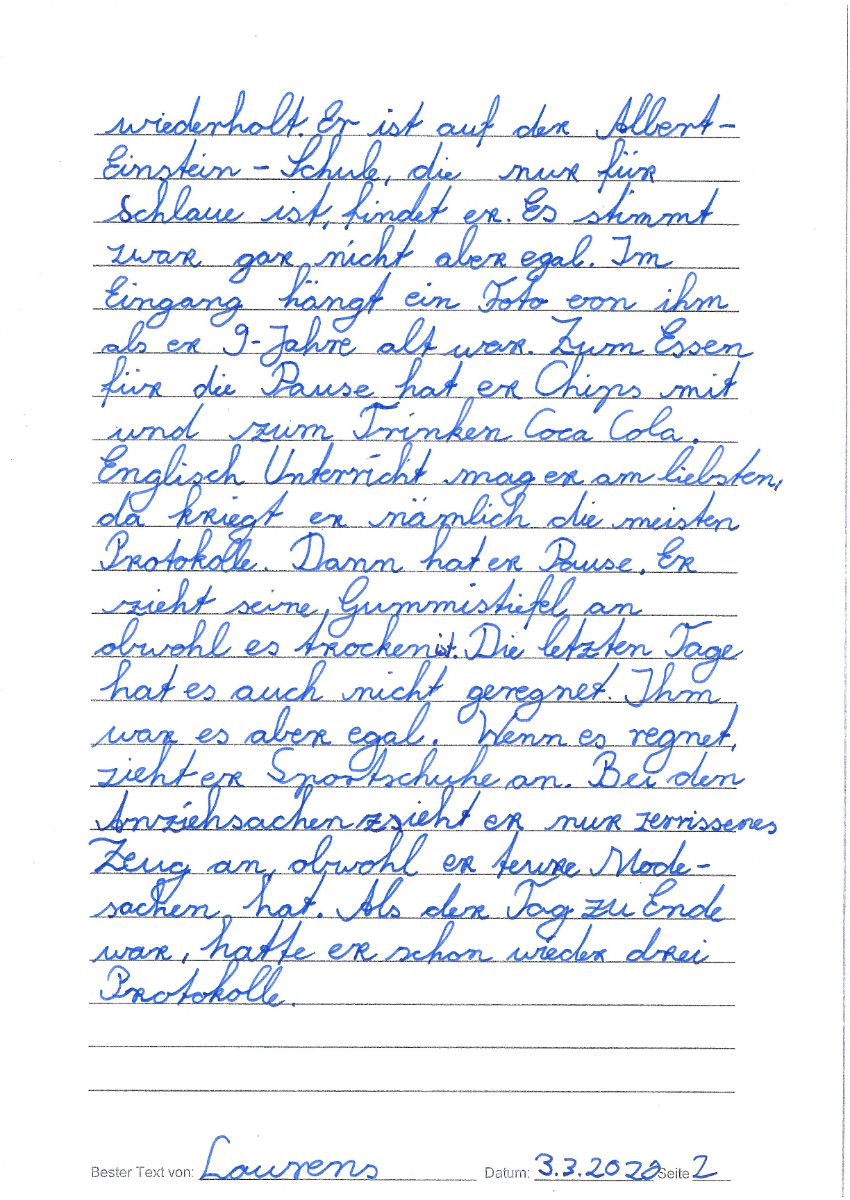 wiederholt. Er ist auf der Albert-
Einstein - Schule, die nur für
Schlaue ist, findet er. Es stimmt
zwar gar nicht aber egal. Im
Eingang hängt ein Foto von ihm
als er 9-Jahre alt war. Zum Essen
für die Pause hat er Chips mit
und zum Trinken Coca Cola.
Englisch Unterricht mag er am liebsten,
da kriegt er nämlich die meisten
Protokolle. Dann hat er Pause. Er
zieht seine Gummistiefel an
obwohl es trocken ist. Die letzten Tage
hat es auch nicht geregnet. Ihm
war es aber egal. Wenn es regnet,
zieht er Sportschuhe an. Bei den
Anziehsachen zieht er nur zerrissenes
Zeug an, obwohl er teure Mode-
sachen hat. Als der Tag zu Ende
war, hatte er schon wieder drei
Protokolle.
Bester Text von: Laurens Datum: 3.3.2020 Seite 2